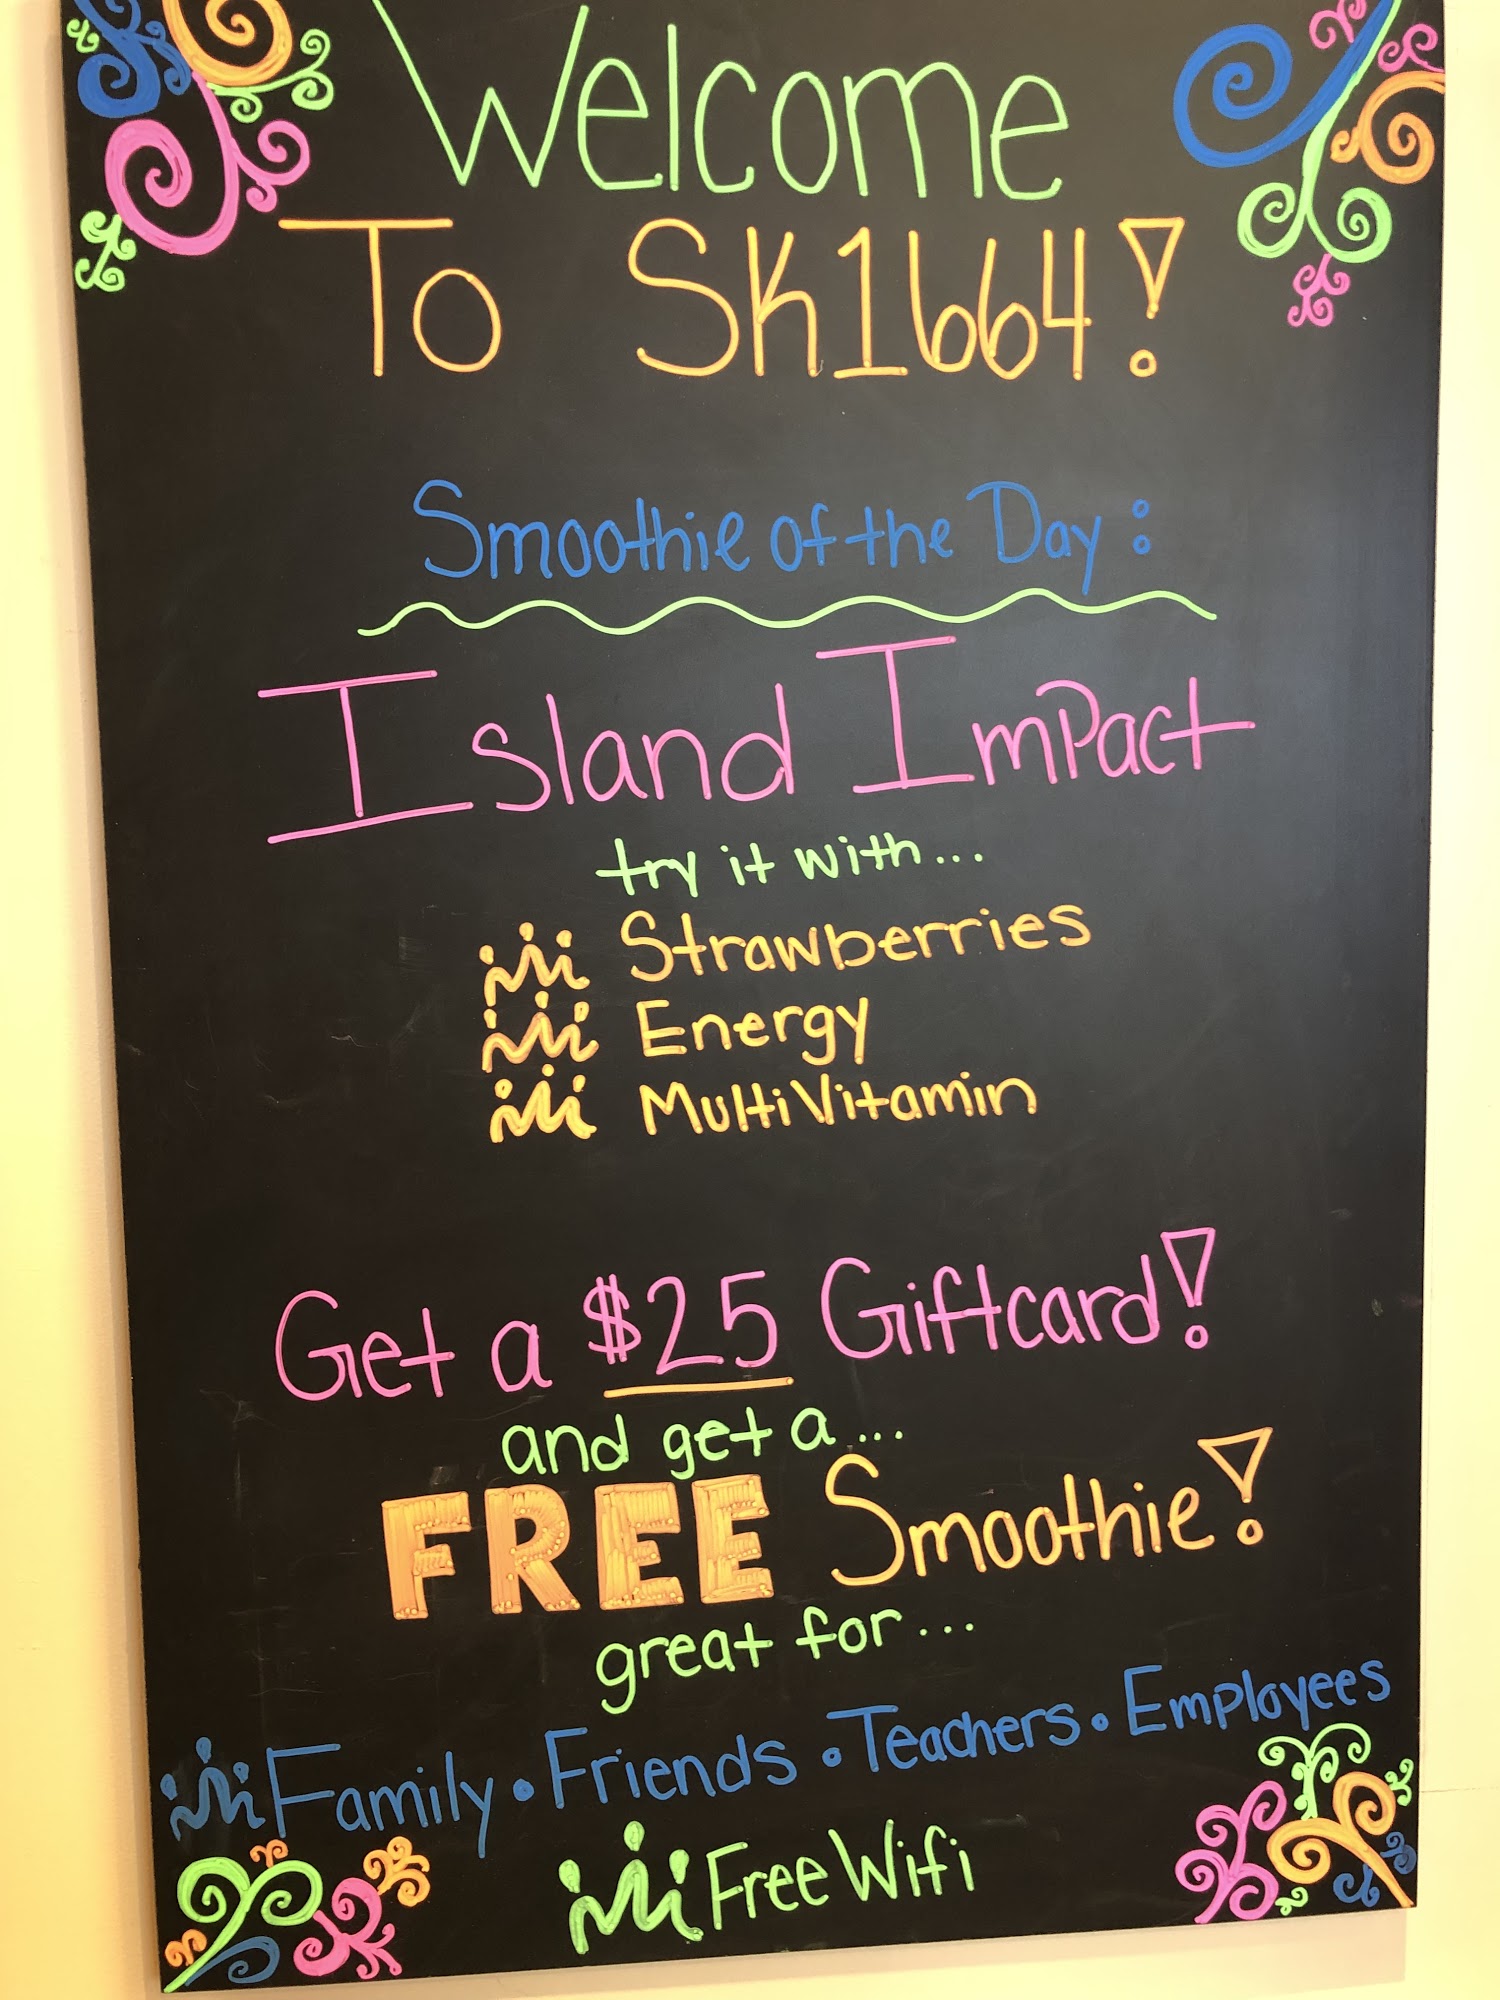 Welcome
To SK1664!
Smoothie of the Day:
Island Impact
try it with...
Strawberries
Energy
MultiVitamin
Get a $25 Giftcard!
and get a...
FREE Smoothie!
great for...
Family • Friends • Teachers • Employees
Free Wifi